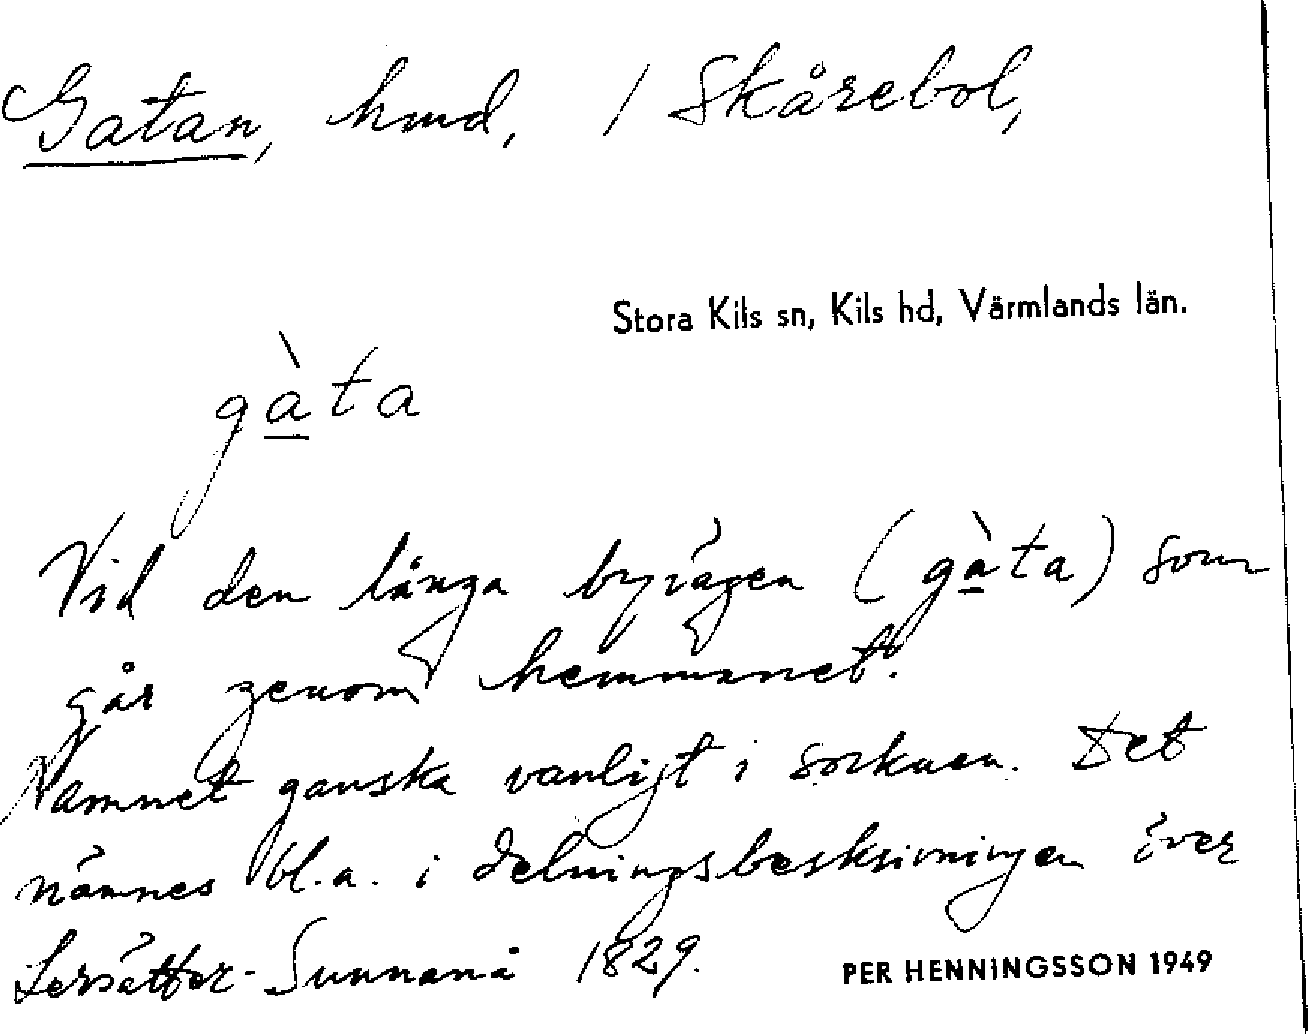 Gatan, hmd, / Skårebol,
Stora Kils sn, Kils hd, Värmlands län.
gàta
Vid den långa byvägen (gàta) som
går genom hemmanet.
Namnet ganska vanligt i socknen. Det
nämnes bl.a. i delningsbeskrivningen över
Lersätter-Sunnanå 1829.
PER HENNINGSSON 1949